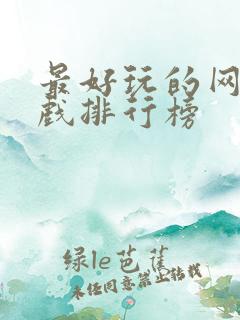 最好玩的网
戏排行榜
绿le芭蕉
未经同意禁止转载